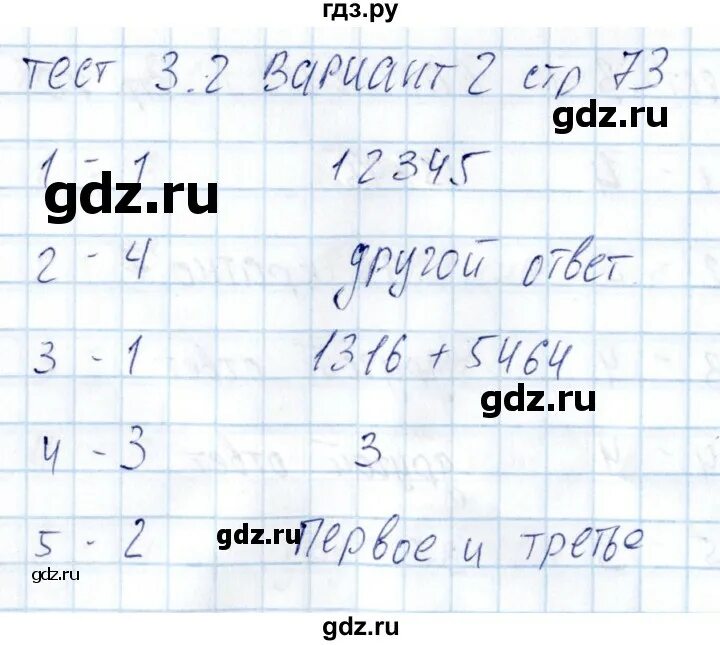 гдз.ру
тест 3.2 Вариант 2 стр 73
gdz.ru
1 - 1 12345
gdz.ru
2 - 4 другой ответ
3 - 1 1316 + 5464
gdz.ru
4 - 3 3
5 - 2 Первое и третье
gdz.ru
gdz.ru
gdz.ru